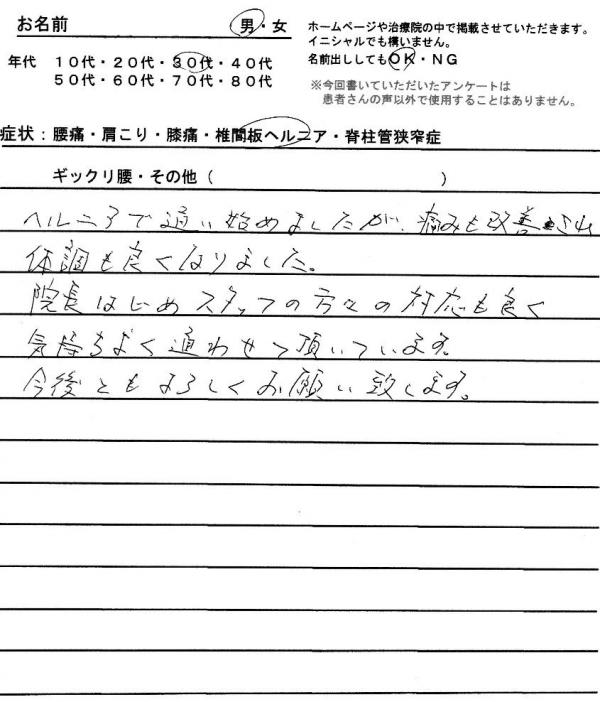 お名前 男・女
ホームページや治療院の中で掲載させていただきます。
イニシャルでも構いません。
名前出ししてもOK・NG
年代 10代・20代・30代・40代
50代・60代・70代・80代
※今回書いていただいたアンケートは
患者さんの声以外で使用することはありません。
症状：腰痛・肩こり・膝痛・椎間板ヘルニア・脊柱管狭窄症
ギックリ腰・その他（ ）
ヘルニアで通い始めましたが、痛みも改善され
体調も良くなりました。
院長はじめスタッフの方々の対応も良く
気持ちよく通わせて頂いています。
今後ともよろしくお願い致します。